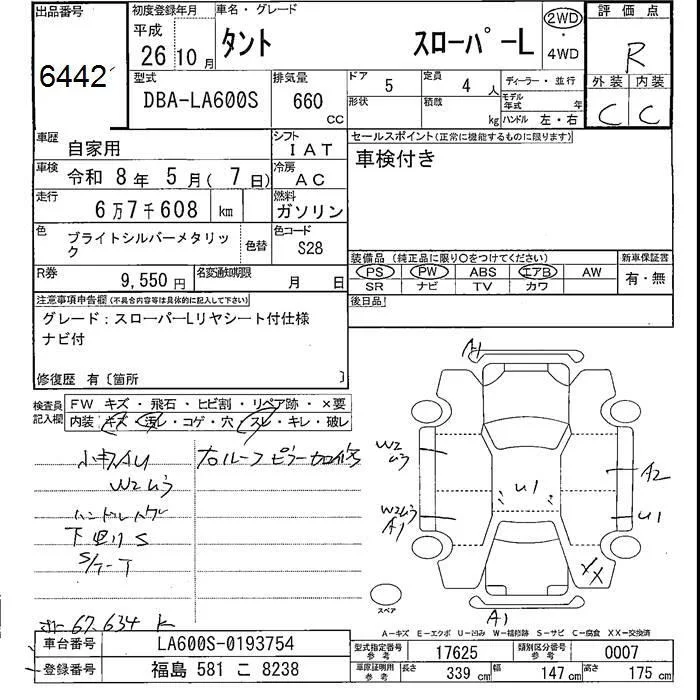 出品番号
6442
初度登録年月
平成
26年10月
車名・グレード
タント スローパーL
2WD
・
4WD
評価点
R
外装 内装
C C
型式
DBA-LA600S
排気量
660
CC
ドア 5
形状
定員 4 人
積載 kg
ディーラー・並行
モデル年式 年
ハンドル 左・右
車歴 自家用
シフト IAT
車検 令和 8年 5月( 7日)
冷房 AC
走行 6万7千608 km
燃料 ガソリン
色 ブライトシルバーメタリック
色替
色コード S28
R券 9,550円
名変通知期限 月 日
セールスポイント(正常に機能するものに限ります)
車検付き
装備品(純正品に限り○をつけてください)
新車保証書
PS PW ABS エアB AW
SR ナビ TV カワ
有・無
後日品!
注意事項申告欄(不具合内容等は具体的に記入して下さい)
グレード:スローパーLリヤシート付仕様
ナビ付
修復歴 有〔箇所 〕
検査員記入欄
FW キズ・飛石・ヒビ割・リペア跡・×要
内装・キズ・汚レ・コゲ・穴・スレ・キレ・破レ
小キズAU
右ルーフピラー加修
W2ムラ
下回りS
67,634 K
A1
W2
ムラ
W2ムラ
A1
U1
A2
U1
XX
A1
スペア
A=キズ E=エクボ U=凹み W=補修跡 S=サビ C=腐食 XX=交換済
車台番号 LA600S-0193754
登録番号 福島 581 こ 8238
型式指定番号 参考 17625
類別区分番号 参考 0007
車庫証明用 参考
長さ 339 cm
幅 147 cm
高さ 175 cm